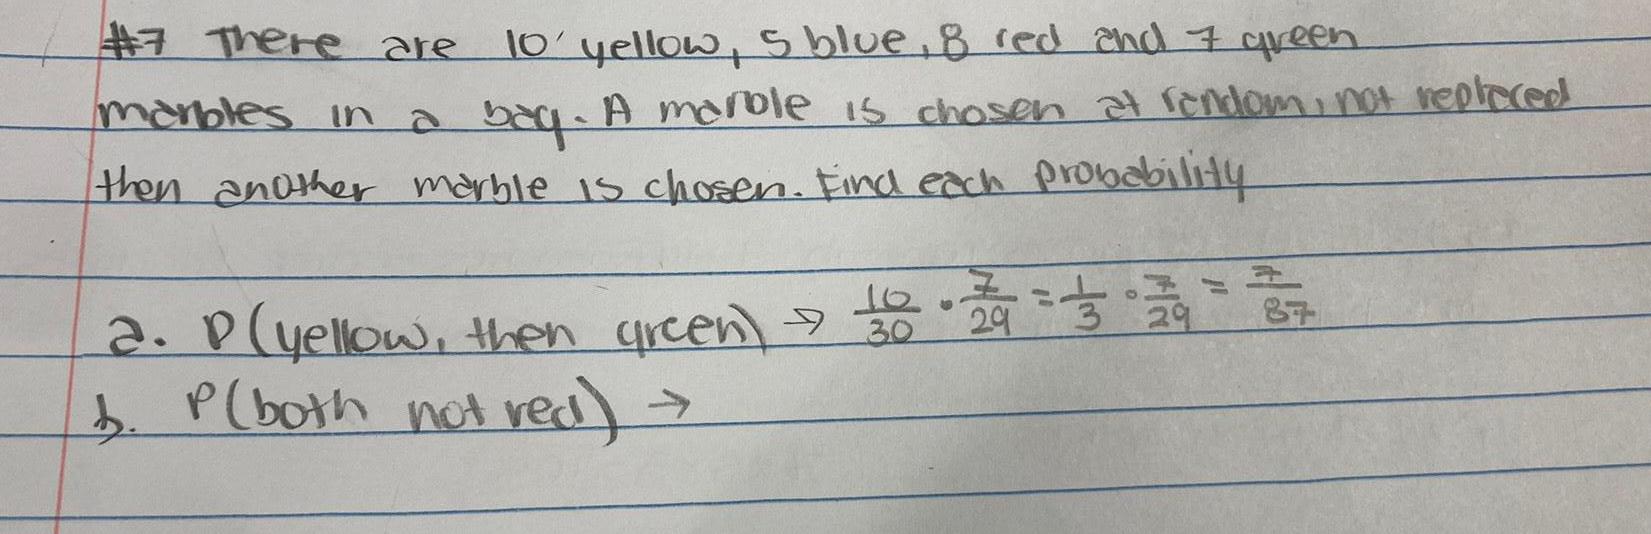 #7 There are 10 yellow, 5 blue, 8 red and 7 green
marbles in a bag. A marble is chosen at random, not replaced
then another marble is chosen. Find each probability
a. P(yellow, then green) → 10/30 · 7/29 = 1/3 · 7/29 = 7/87
b. P(both not red) →